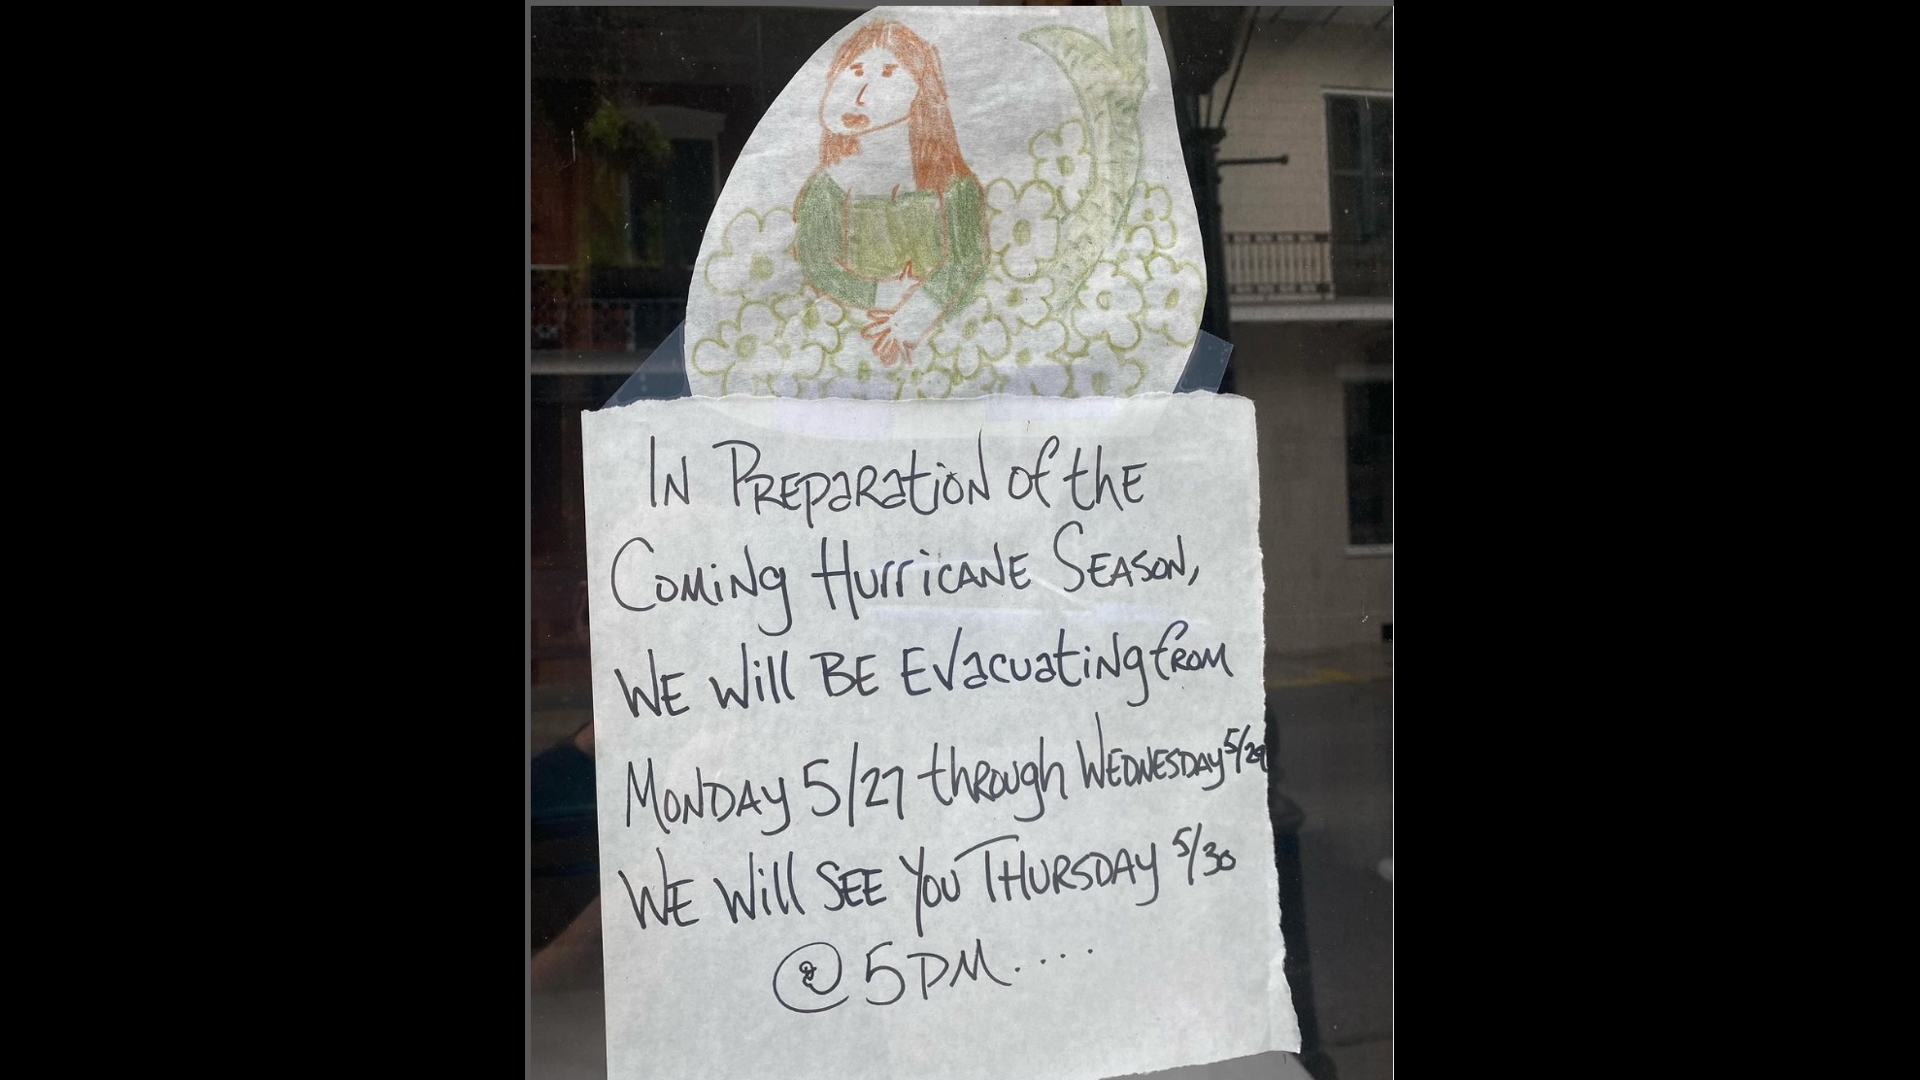 IN PREPARATION of the
COMING HURRICANE SEASON,
WE Will BE EVACUATING from
MONDAY 5/27 through WEDNESDAY 5/29
WE Will SEE YOU THURSDAY 5/30
@ 5PM....